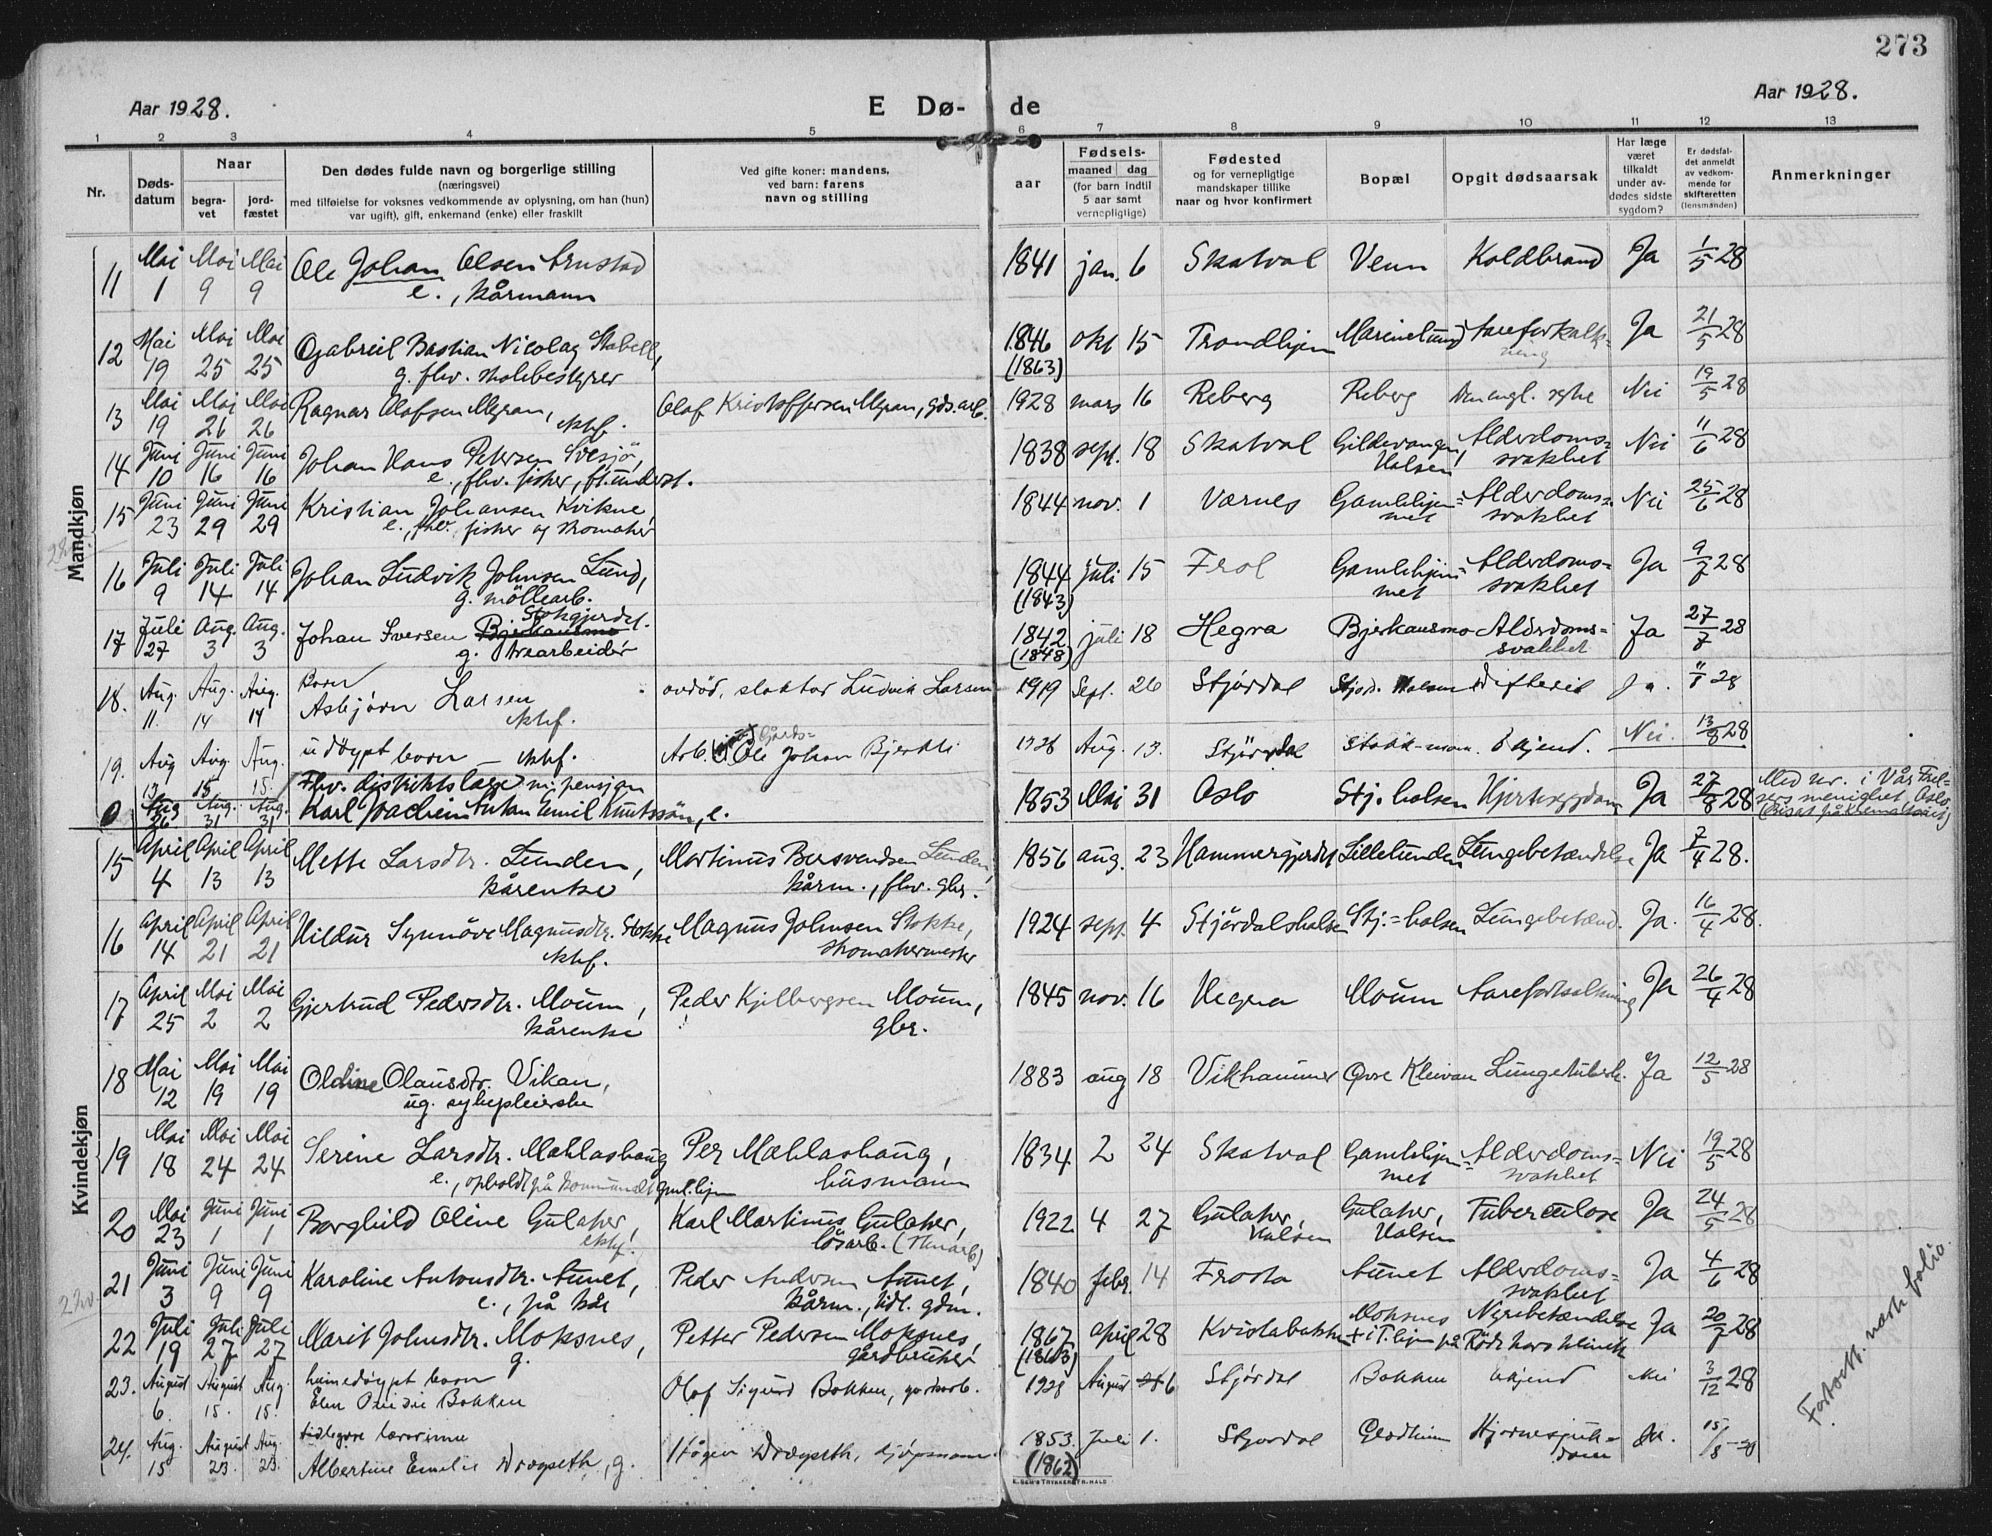 273
Aar 1928.
E Dø-
de
Aar 1928.
1 2 3 4 5 6 7 8 9 10 11 12 13
Nr.
Døds-
datum
Naar
begra-
vet
jord-
fæstet
Den dødes fulde navn og borgerlige stilling
(næringsvei)
med tilføielse for voksnes vedkommende av oplysning, om han (hun)
var ugift), gift, enkemand (enke) eller fraskilt
Ved gifte koner: mandens,
ved barn: farens
navn og stilling
Fødsels-
aar
maaned dag
(for barn indtil
5 aar samt
vernepligtige)
Fødested
og for vernepligtige
mandskaper tillike
naar og hvor konfirmert
Bopæl
Opgit dødsaarsak
Har læge
været
tilkaldt
under av-
dødes sidste
sygdom?
Er dødsfal-
det anmeldt
av vedkom-
mende for
skifteretten
(lensmanden)
Anmerkninger
Mandkjøn
11 Mai 1 Mai 9 Mai 9 Ole Johan Olsen Arnstad
e., kårmann
1841 jan. 6 Skatval Venn Koldbrand Ja 1/5 28
12 Mai 19 Mai 25 Mai 25 Gabriel Bastian Nicolay Stabell,
g. fhv. skolebestyrer
1846 (1863) okt 15 Trondhjem Marinelund Aareforkalk=
ning Ja 21/5 28
13 Mai 19 Mai 26 Mai 26 Ragnar Olafsen Myran,
ektf.
Olaf Kristoffersen Myran, gds.arb.
1928 mars 16 Reberg Reberg Den engl. syke Nei 19/5 28
14 Juni 10 Juni 16 Juni 16 Johan Hans Petersen Svesjø,
e., fhv. fisker, ft.underst.
1838 sept. 18 Skatval Gildevangen,
Halsen Alderdoms=
svakhet Nei 11/6 28
15 Juni 23 Juni 29 Juni 29 Kristian Johansen Kvikne,
e., fhv. fisker og skomaker
1844 nov. 1 Værnes Gamlehjem=
met Alderdoms=
svakhet Nei 25/6 28
16 Juli 9 Juli 14 Juli 14 Johan Ludvik Johnsen Lund,
g. møllearb.
1844 (1843) juli 15 Frol Gamlehjem=
met Alderdoms=
svakhet Ja 9/7 28
17 Juli 27 Aug. 3 Aug. 3 Johan Iversen Bjerkansmo Stokgjerdet.
g. træarbeider
1842 (1848) juli 18 Hegra Bjerkansmo Alderdoms=
svakhet Ja 27/7 28
18. Aug. 11. Aug. 14 Aug. 14 Barn
Asbjørn Larsen
ektf.
avdød, slakter Ludvik Larsen
1919 Sept. 26 Stjørdal Stjørd. Halsen Difterit Ja. 11/8 28
19. Aug 13 Aug. 15 Aug. 15. udøypt barn — ektf.
Arb. Gårds=
Ole Johan Bjerkli
1928 Aug. 13. Stjørdal Stokk-moen. Ukjend. Nei. 13/8 28
0 Aug 26 Aug. 31 Aug. 31 Fhv. distriktslæge m. pensjon
Karl Joachim Anton Emil Knutssøn, e.
1853 Mai 31 Oslo Stj.halsen Hjertesygdom Ja 27/8 28 Med nr. i Vår Frel-
sers menighet, Oslo,
(Bisat på krematoriet)
Kvindekjøn
15 April 4 April 13 April 13 Mette Larsdtr. Lunden,
kårenke
Martinus Bersvendsen Lunden,
kårm., fhv. gbr.
1856 aug. 23 Hammergjerdet Lillelunden Lungebetændelse Ja 7/4 28.
16 April 14 April 21 April 21 Hildur Synnøve Magnusdtr. Stokke
ektf.
Magnus Johnsen Stokke,
skomakermester
1924 sept. 4 Stjørdalshalsen Stj.=halsen Lungebetænd. Ja. 16/4 28.
17 April 25 Mai 2 Mai 2 Gjertrud Pedersdtr. Moum,
kårenke
Peder Kjelbergsen Moum,
gbr.
1845 nov. 16 Hegra Moum Aareforkalkning Ja 26/4 28
18 Mai 12 Mai 19 Mai 19 Oldine Olausdtr. Vikan,
ug. sykepleierske
1883 aug 18 Vikhammer Øvre Kleivan Lungetuberk. Ja 12/5 28
19 Mai 18 Mai 24 Mai 24 Serine Larsdtr. Mæhlashaug
e., opholdt på kommunalt gml.hjem
Per Mæhlashaug,
husmann
1834 2 24 Skatval Gamlehjem=
met Alderdoms=
svakhet Nei 19/5 28
20 Mai 23 Juni 1 Juni 1 Borghild Oline Gulaker,
ektf.
Karl Martinus Gulaker,
løsarb. (stenarb)
1922 4 27 Gulaker,
Halsen Gulaker,
Halsen Tuberculose Ja 24/5 28
21 Juni 3 Juni 9 Juni 9 Karoline Antonsdtr. Aunet,
e., på kår
Peder Andersen Aunet,
kårm., tidl. gdm.
1840 febr. 14 Frosta Aunet Alderdoms=
svakhet Ja 4/6 28
22 Juli 19 Juli 27 Juli 27 Marit Johnsdtr. Moksnes,
g.
Petter Pedersen Moksnes,
gårdbruker
1867 (1863) april 28 Kvislabakken Moksnes
+ i T.hjem på Nyrebetændelse
Röde kors klinik Ja 20/7 28
23. August 6. August 15. Aug. 15. hjemedøypt barn
Elen Bakken
Olaf Sigurd Bakken, gardarb.
1928 August 6 Stjørdal Bakken Ukjend Nei 3/12 28
24. Aug. 15 August 23. Aug. 23. tidlegare lærerinne
Albertine Emelie Dragseth, g.
Hågen Dragseth, kjøpmann
1853. (1862) Juli 1. Stjordal Hjertesjuk=
dom Ja. 15/8 28
Fortsett. næste folio.
E. SEM'S TRYKKERI, FR.HALD